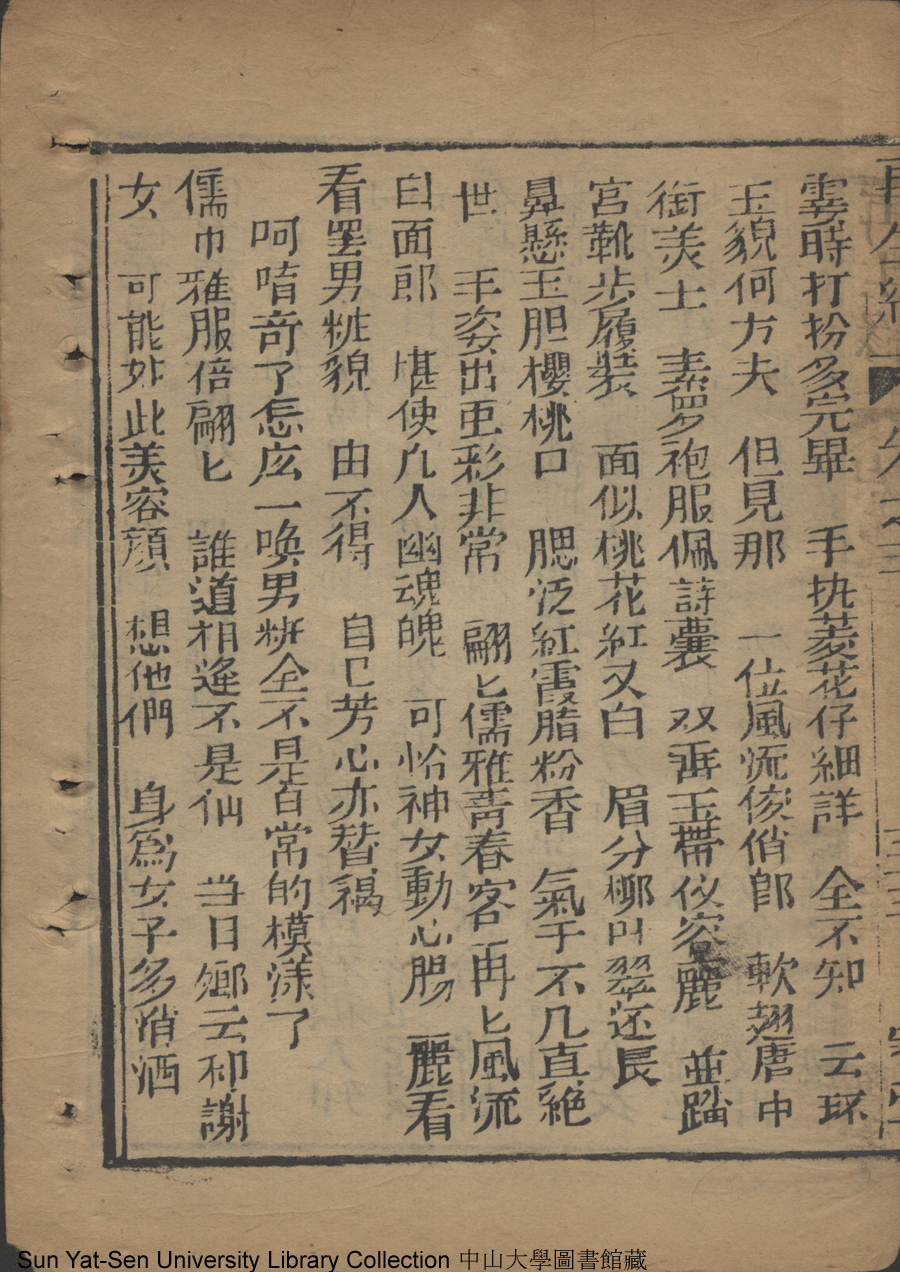 霎時打扮多完畢　手执菱花仔細詳　全不知　云环
玉貌何方夫　但見那　一位風流俊俏郎　軟翅唐巾
銜美士　素罗袍服佩詩囊　双垂玉帶仪容麗　並踏
宮靴步履装　面似桃花紅又白　眉分柳叫翠还長
鼻懸玉胆櫻桃口　腮泛紅霞脂粉香　氣宇不凡直絕
世　丰姿出亜彩非常　翩匕儒雅靑春客　再匕風流
白面郎　堪使凢人幽魂魄　可恰神女動心腸　麗看
看罢男粧貌　由不得　自已芳心亦替禍
呵唷奇了怎庅一喚男粧全不是百常的模漾了
儒巾雅服倍翩匕　誰道相逢不是仙　当日鄉云和謝
女　可能如此美容顔　想他們　身爲女子多俏洒
再　三
Sun Yat-Sen University Library Collection 中山大學圖書館藏